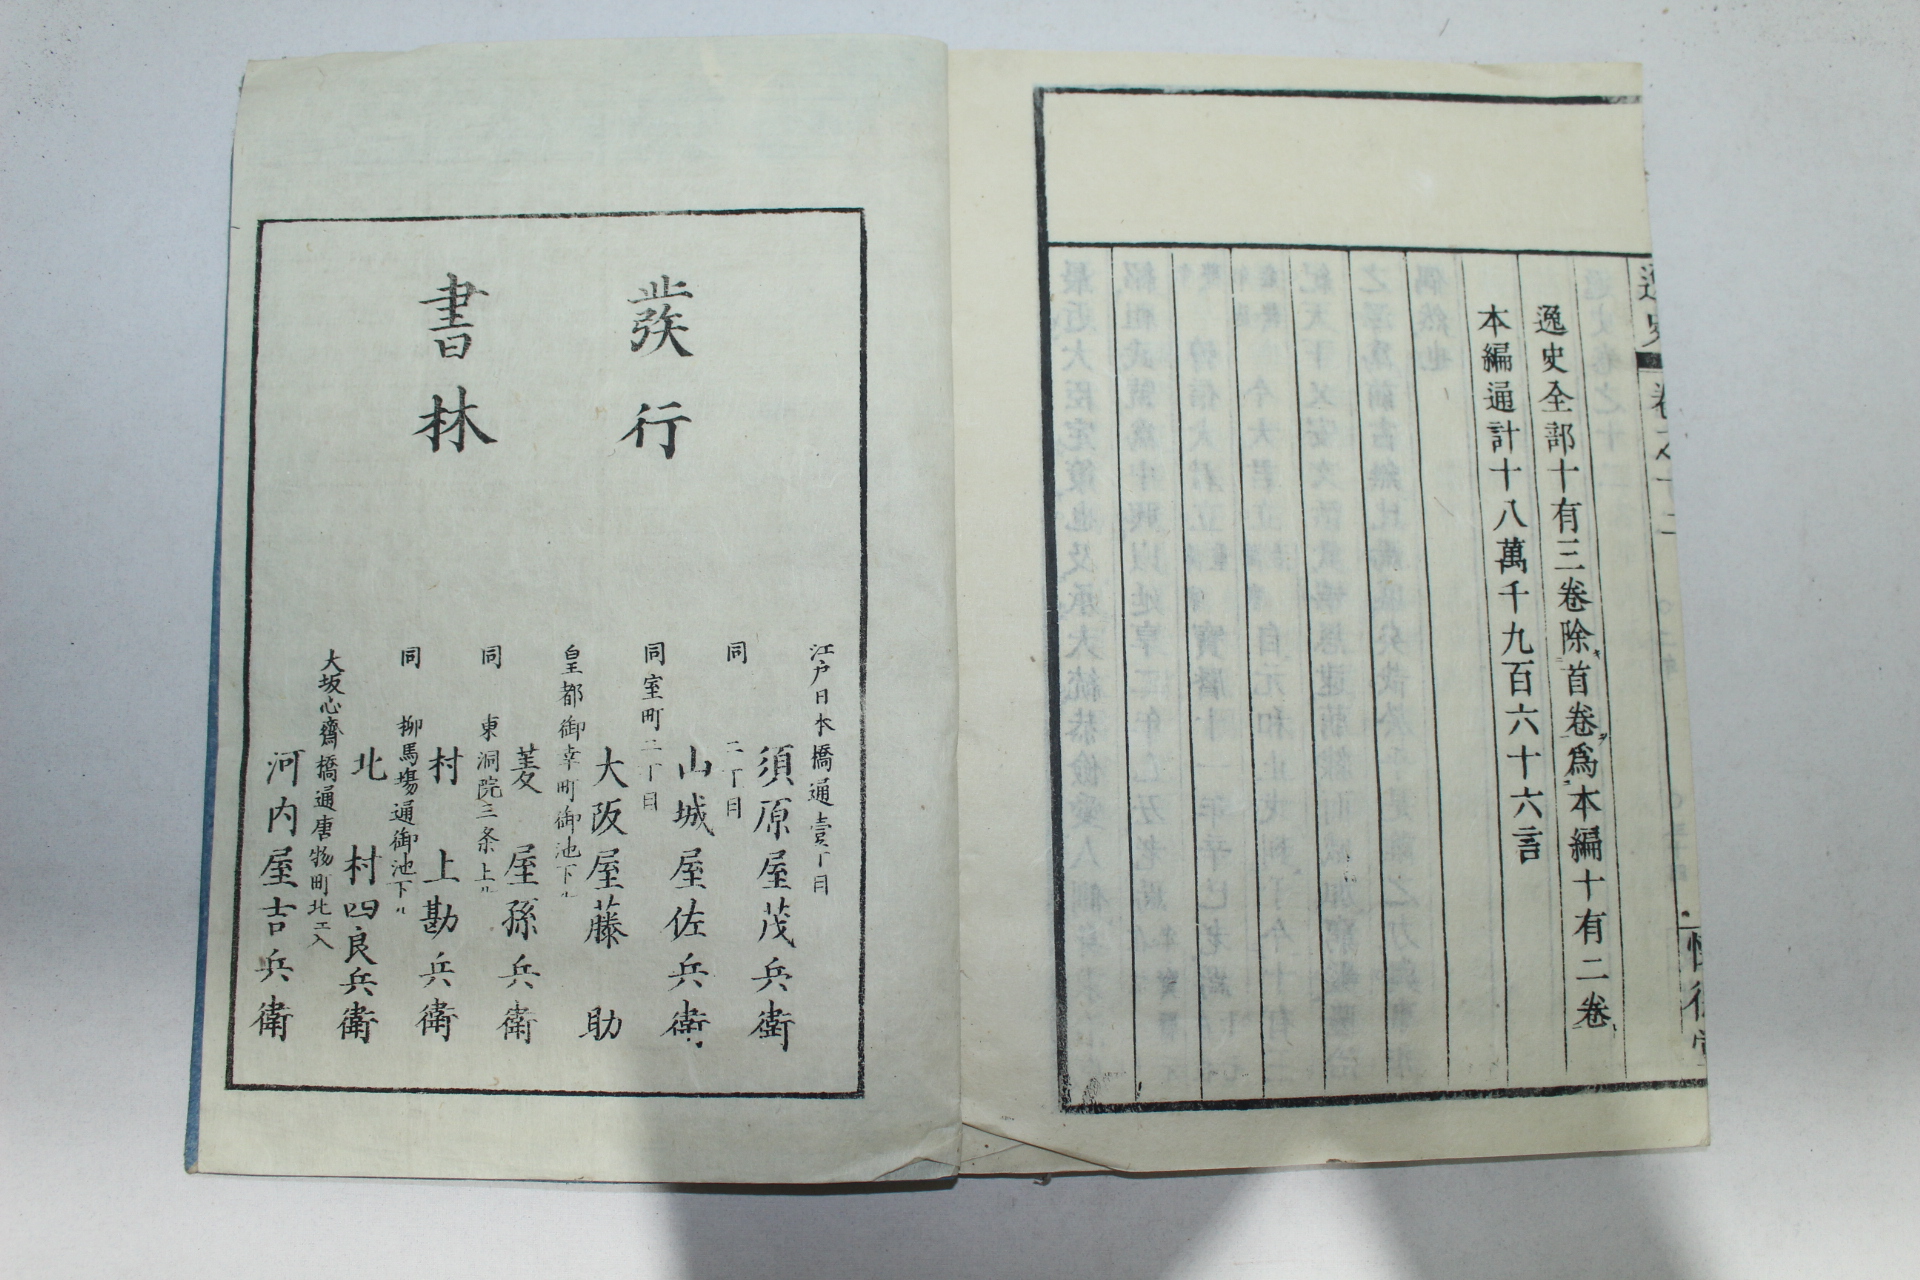 逸史 卷之十二
逸史全部十有三卷除首卷爲本編十有二卷
本編通計十八萬千九百六十六言
發行
書林
江戸日本橋通壹丁目
須原屋茂兵衛
同 二丁目
山城屋佐兵衛
同室町二丁目
大阪屋藤助
皇都御幸町御池下ル
菱屋孫兵衛
同 東洞院三条上ル
村上勘兵衛
同 柳馬塲通御池下ル
北村四良兵衛
大坂心齋橋通唐物町北エ入
河内屋吉兵衛